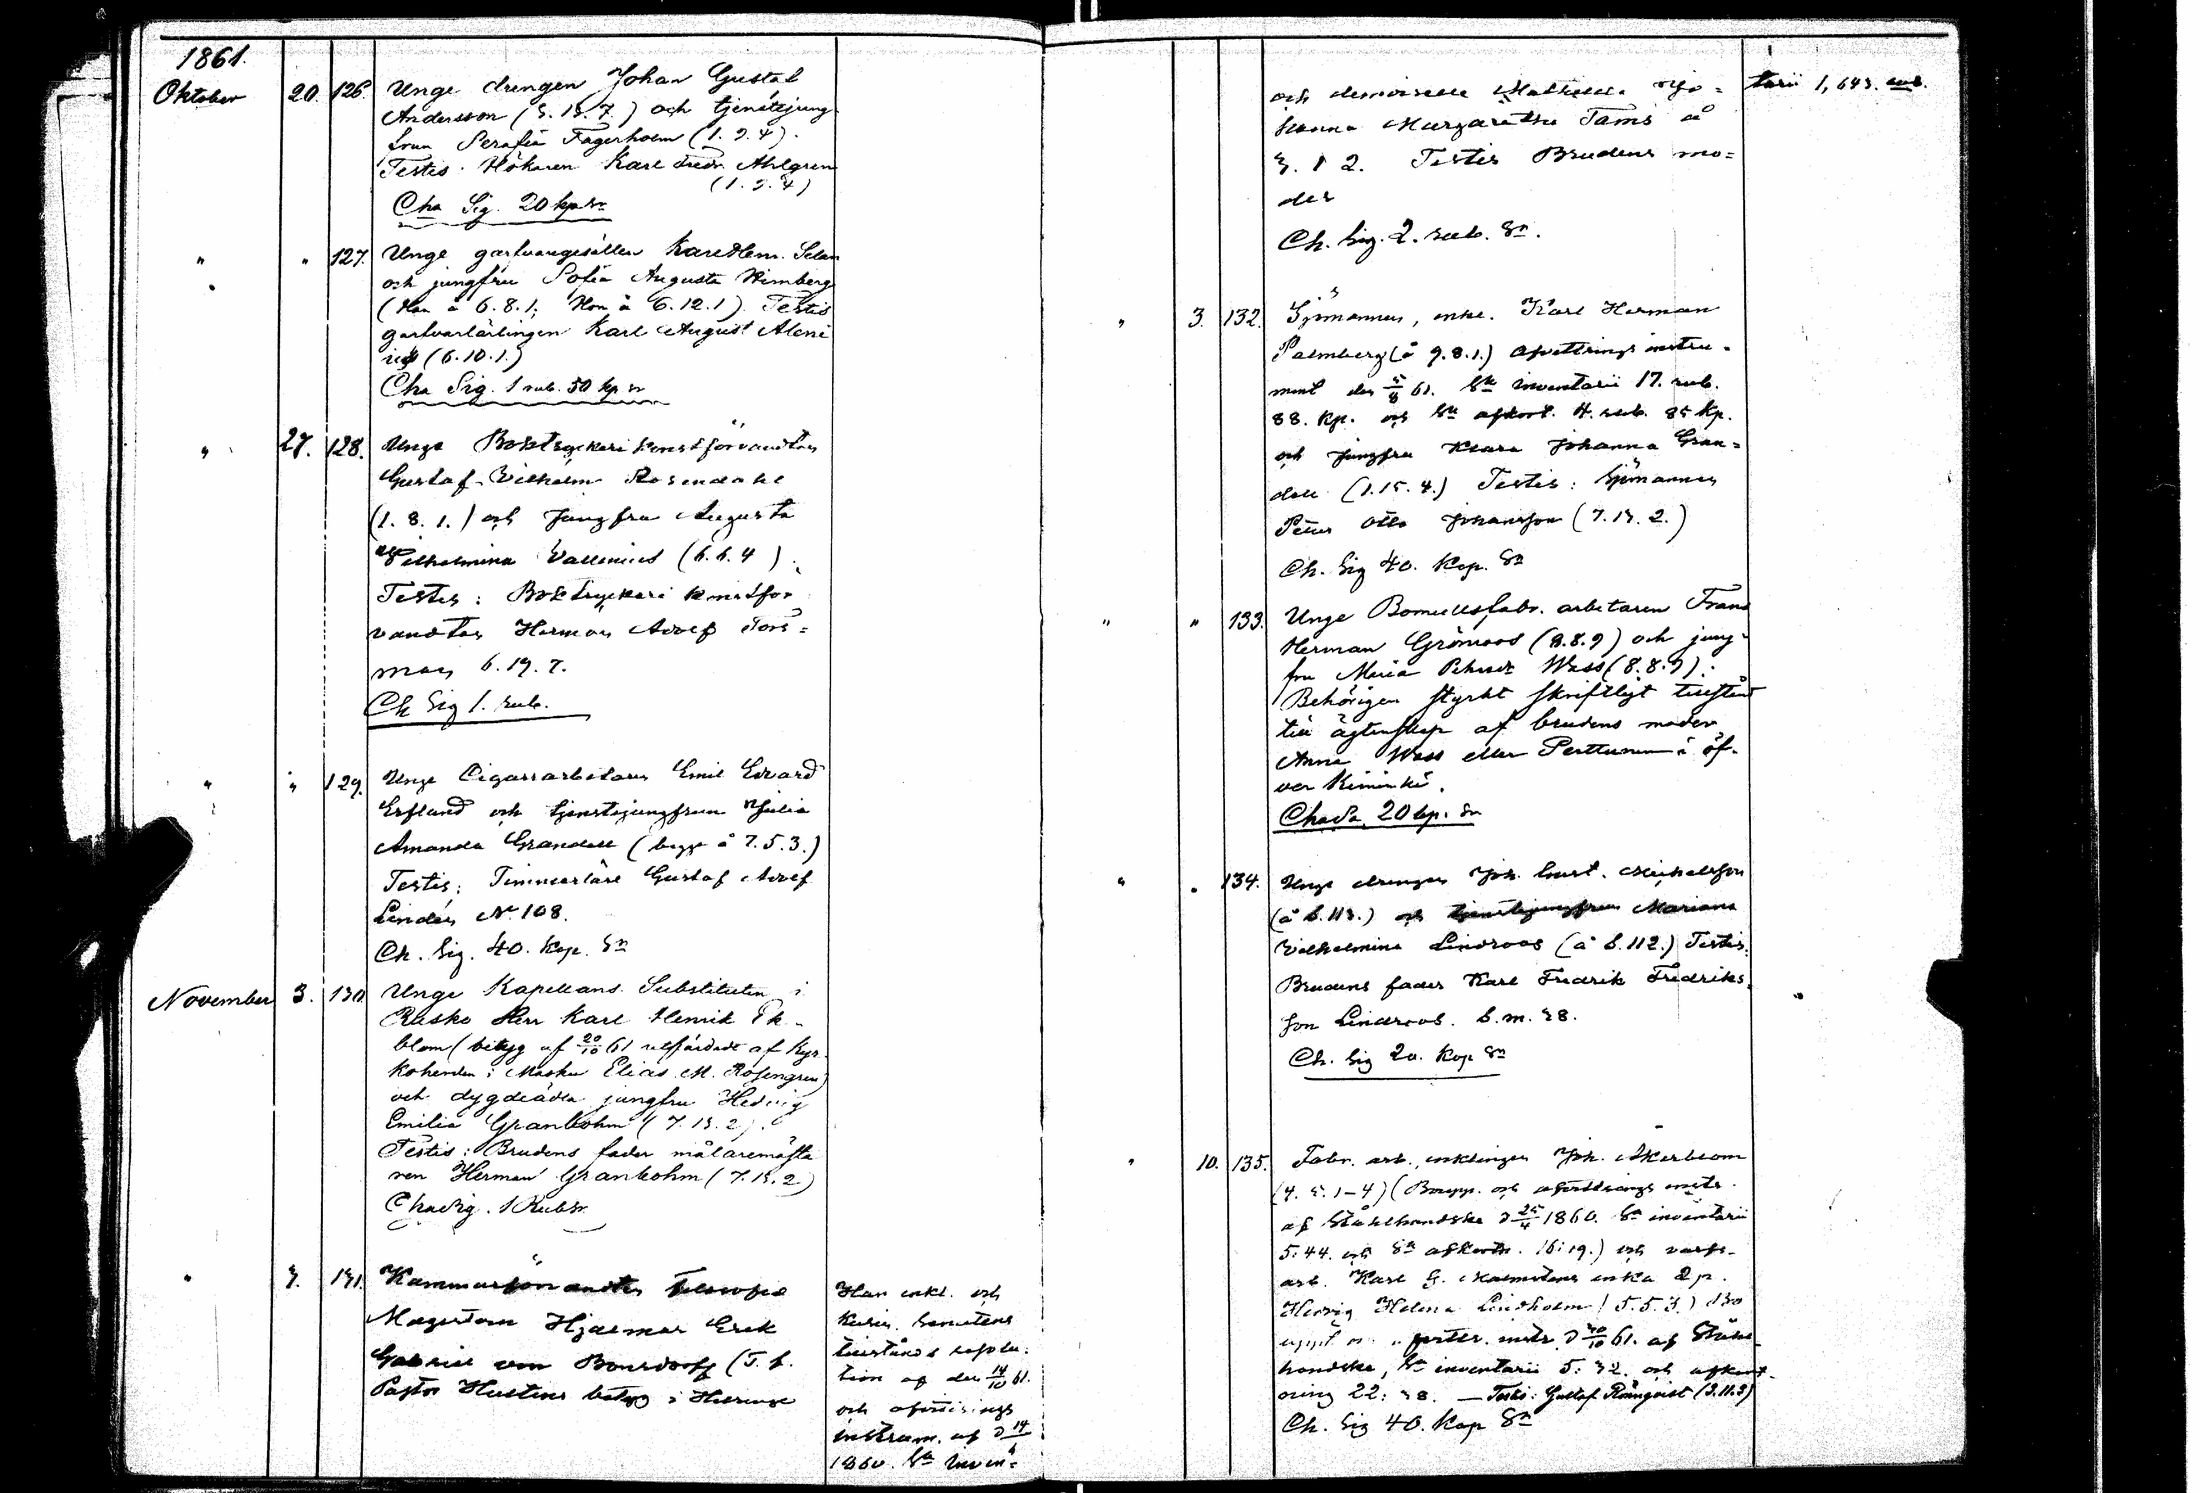 1861.
Oktober 20. 126. Unge drengen Johan Gustaf
Andersson (3. 13. 7.) och tjenstejung-
frun Serafia Fagerholm (1. 9. 4).
Testis. Hökaren Karl Fredr. Ahlgren
(1. 9. 4)
Cha Sig. 20 kp sr
" " 127. Unge garfvaregesällen Karl Hem. Selan
och jungfru Sofia Augusta Wimberg
(Han å 6. 8. 1; Hon å 6. 12. 1). Testis
garfvarlärlingen Karl August Aleni
us (6. 10. 1.)
Cha Sig. 1 rub. 50 kp sr
" 27. 128. Unge Boktryckeri konstförvandten
Gustaf Vilhelm Rosendahl
(1. 8. 1.) och Jungfru Augusta
Vilhelmina Vallenius (6. 6. 4)
Testis: Boktryckeri konstför
vandten Herman Adolf Fors=
man 6. 19. 7.
Ch Sig 1. rub.
" " 129. Unge Cigarrarbetaren Emil Edvard
Erflund och tjenstejungfrun Julia
Amanda Grandell (begge å 7. 5. 3.)
Testis; Timmerlärl Gustaf Adolf
Lindén No 108.
Ch. Sig. 40. Kop. Sr
November 3. 130 Unge Kapellans Substituten i
Rusko Herr Karl Henrik Ek-
blom (betyg af 20/10 61 utfärdadt af Kyr-
koherden i Masku Elias M. Rosengren)
och dygdeädla jungfru Hedvig
Emilia Granbohm (7. 13. 2).
Testis: Brudens fader målaremästa
ren Herman Granbohm (7. 13. 2)
Cha Sig. 1 Rub Sr.
" 3. 131. Kammarförvandten Filosofie
Magistern Hjalmar Erik
Gabriel von Bonsdorff (T. f.
Pastor Hustens betyg i Helsinge
Han enkl. och
Keiserl. Senatens
tillstånds resolu-
tion af den 14/10 61.
och afvittrings
instrum. af d 14/
1860. Sn Inven=
och demoiselle Mathilda Jo=
hanna Margaretha Tams å
3. 1 2. Testis Brudens mo=
der
Ch. Sig. 2. rub. Sr.
tarii 1,643. rub.
" 3. 132. Sjömannen, enkl. Karl Herman
Palmberg (å 9. 8. 1.) Afvittrings instru-
ment den 5/8 61. Sn inventarii 17. rub.
88. kp. och Sn afkort. 4. rub. 85 kp.
och Jungfru Klara Johanna Gran=
dell (1. 15. 4.) Testis: Sjömannen
Petter Otto Johansson (7. 13. 2.)
Ch. Sig 40. Kop. Sr
" " 133. Unge Bomullsfabr. arbetaren Frans
Herman Grönroos (8. 8. 9) och jung-
fru Maria Wass (8. 8. 9).
Behörigen styrkt skriftligt tillstånd
till ägtenskap af brudens moder
Anna Wass eller Perttunen i öf-
ver Kiminki.
Cha S. 20 kp. Sr
" " 134. Unge drengen Joh. Gust. Michelsson
(å b. 113.) och tjenstejungfrun Mariana
Vilhelmina Lindroos (å b. 112.) Testis:
Brudens fader Karl Fredrik Fredriks-
son Lindroos. b. m. 38.
Ch. Sig 20. Kop Sr
" 10. 135. Fabr. arb., enklingen Joh. Åkerblom
(4. 5. 1-4) (Boupp. och afvittrings instr.
af Stålhandske d 25/4 1860. Sn inventarii
5: 44. och Sn afkortn. 16: 19.) och varfs-
arb. Karl G. Malmstens enka 2 p.
Hedvig Helena Lindholm (5. 5. 3.)
instr. d 30/10 61. af Stål-
handske, Sn inventarii 5. 32. och afkort-
ning 22: 38. — Testis: Gustaf Rönnqvist (3. 11. 3)
Ch. Sig 40. Kop Sr